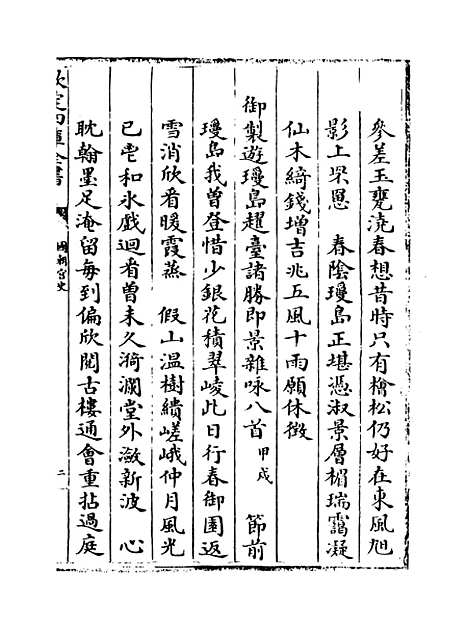 參差玉甃澆春想昔時只有檜松仍好在東風旭
影上罘罳　春陰瓊島正堪憑淑景層楣瑞靄凝
仙木綺錢增吉兆五風十雨願休徴
御製遊瓊島趯臺諸勝即景雜咏八首甲戌　節前
瓊島我曽登惜少銀花積翠崚此日行春御園返
雪消欣看暖霞蒸　假山温樹繢嵯峨仲月風光
已㐌和氷戲迴看曽未久漪瀾堂外瀲新波　心
耽翰墨足淹留毎到偏欣閲古樓通會重拈過庭
欽定四庫全書
國朝宫史
二